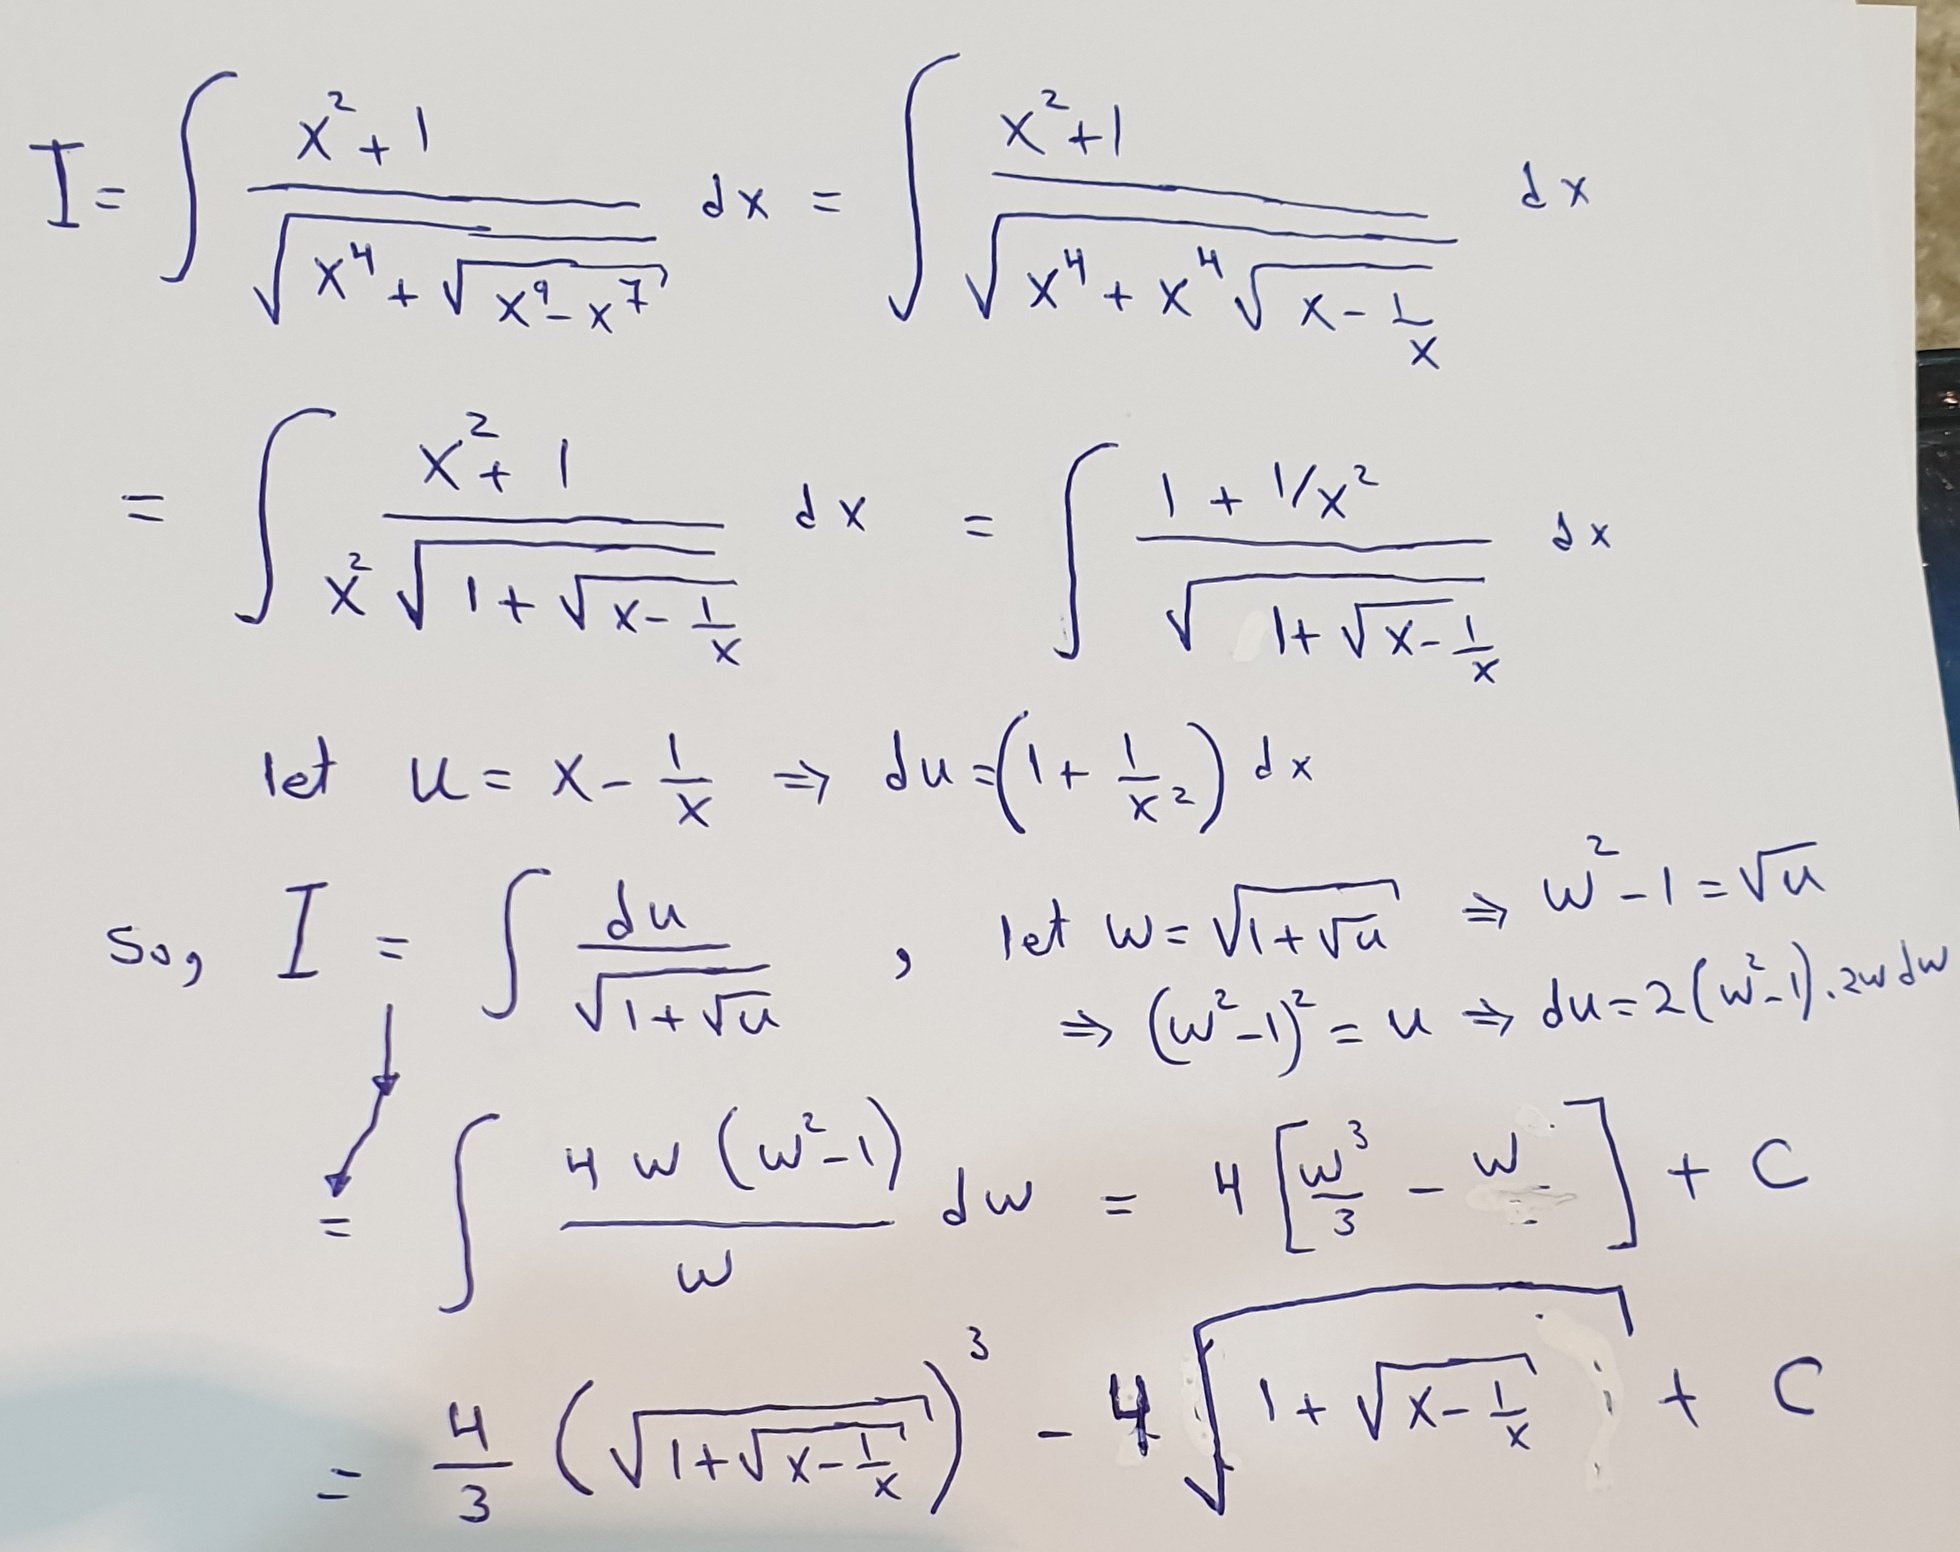 I = ∫ (x² + 1) / √(x⁴ + √(x⁹ - x⁷)) dx = ∫ (x² + 1) / √(x⁴ + x⁴ √(x - 1/x)) dx
= ∫ (x² + 1) / (x² √(1 + √(x - 1/x))) dx = ∫ (1 + 1/x²) / √(1 + √(x - 1/x)) dx
let u = x - 1/x ⇒ du = (1 + 1/x²) dx
So, I = ∫ du / √(1 + √u) , let w = √(1 + √u) ⇒ w² - 1 = √u
⇒ (w² - 1)² = u ⇒ du = 2(w² - 1) . 2w dw
= ∫ 4w (w² - 1) / w dw = 4 [w³/3 - w] + C
= 4/3 (√(1 + √(x - 1/x)))³ - 4 √(1 + √(x - 1/x)) + C